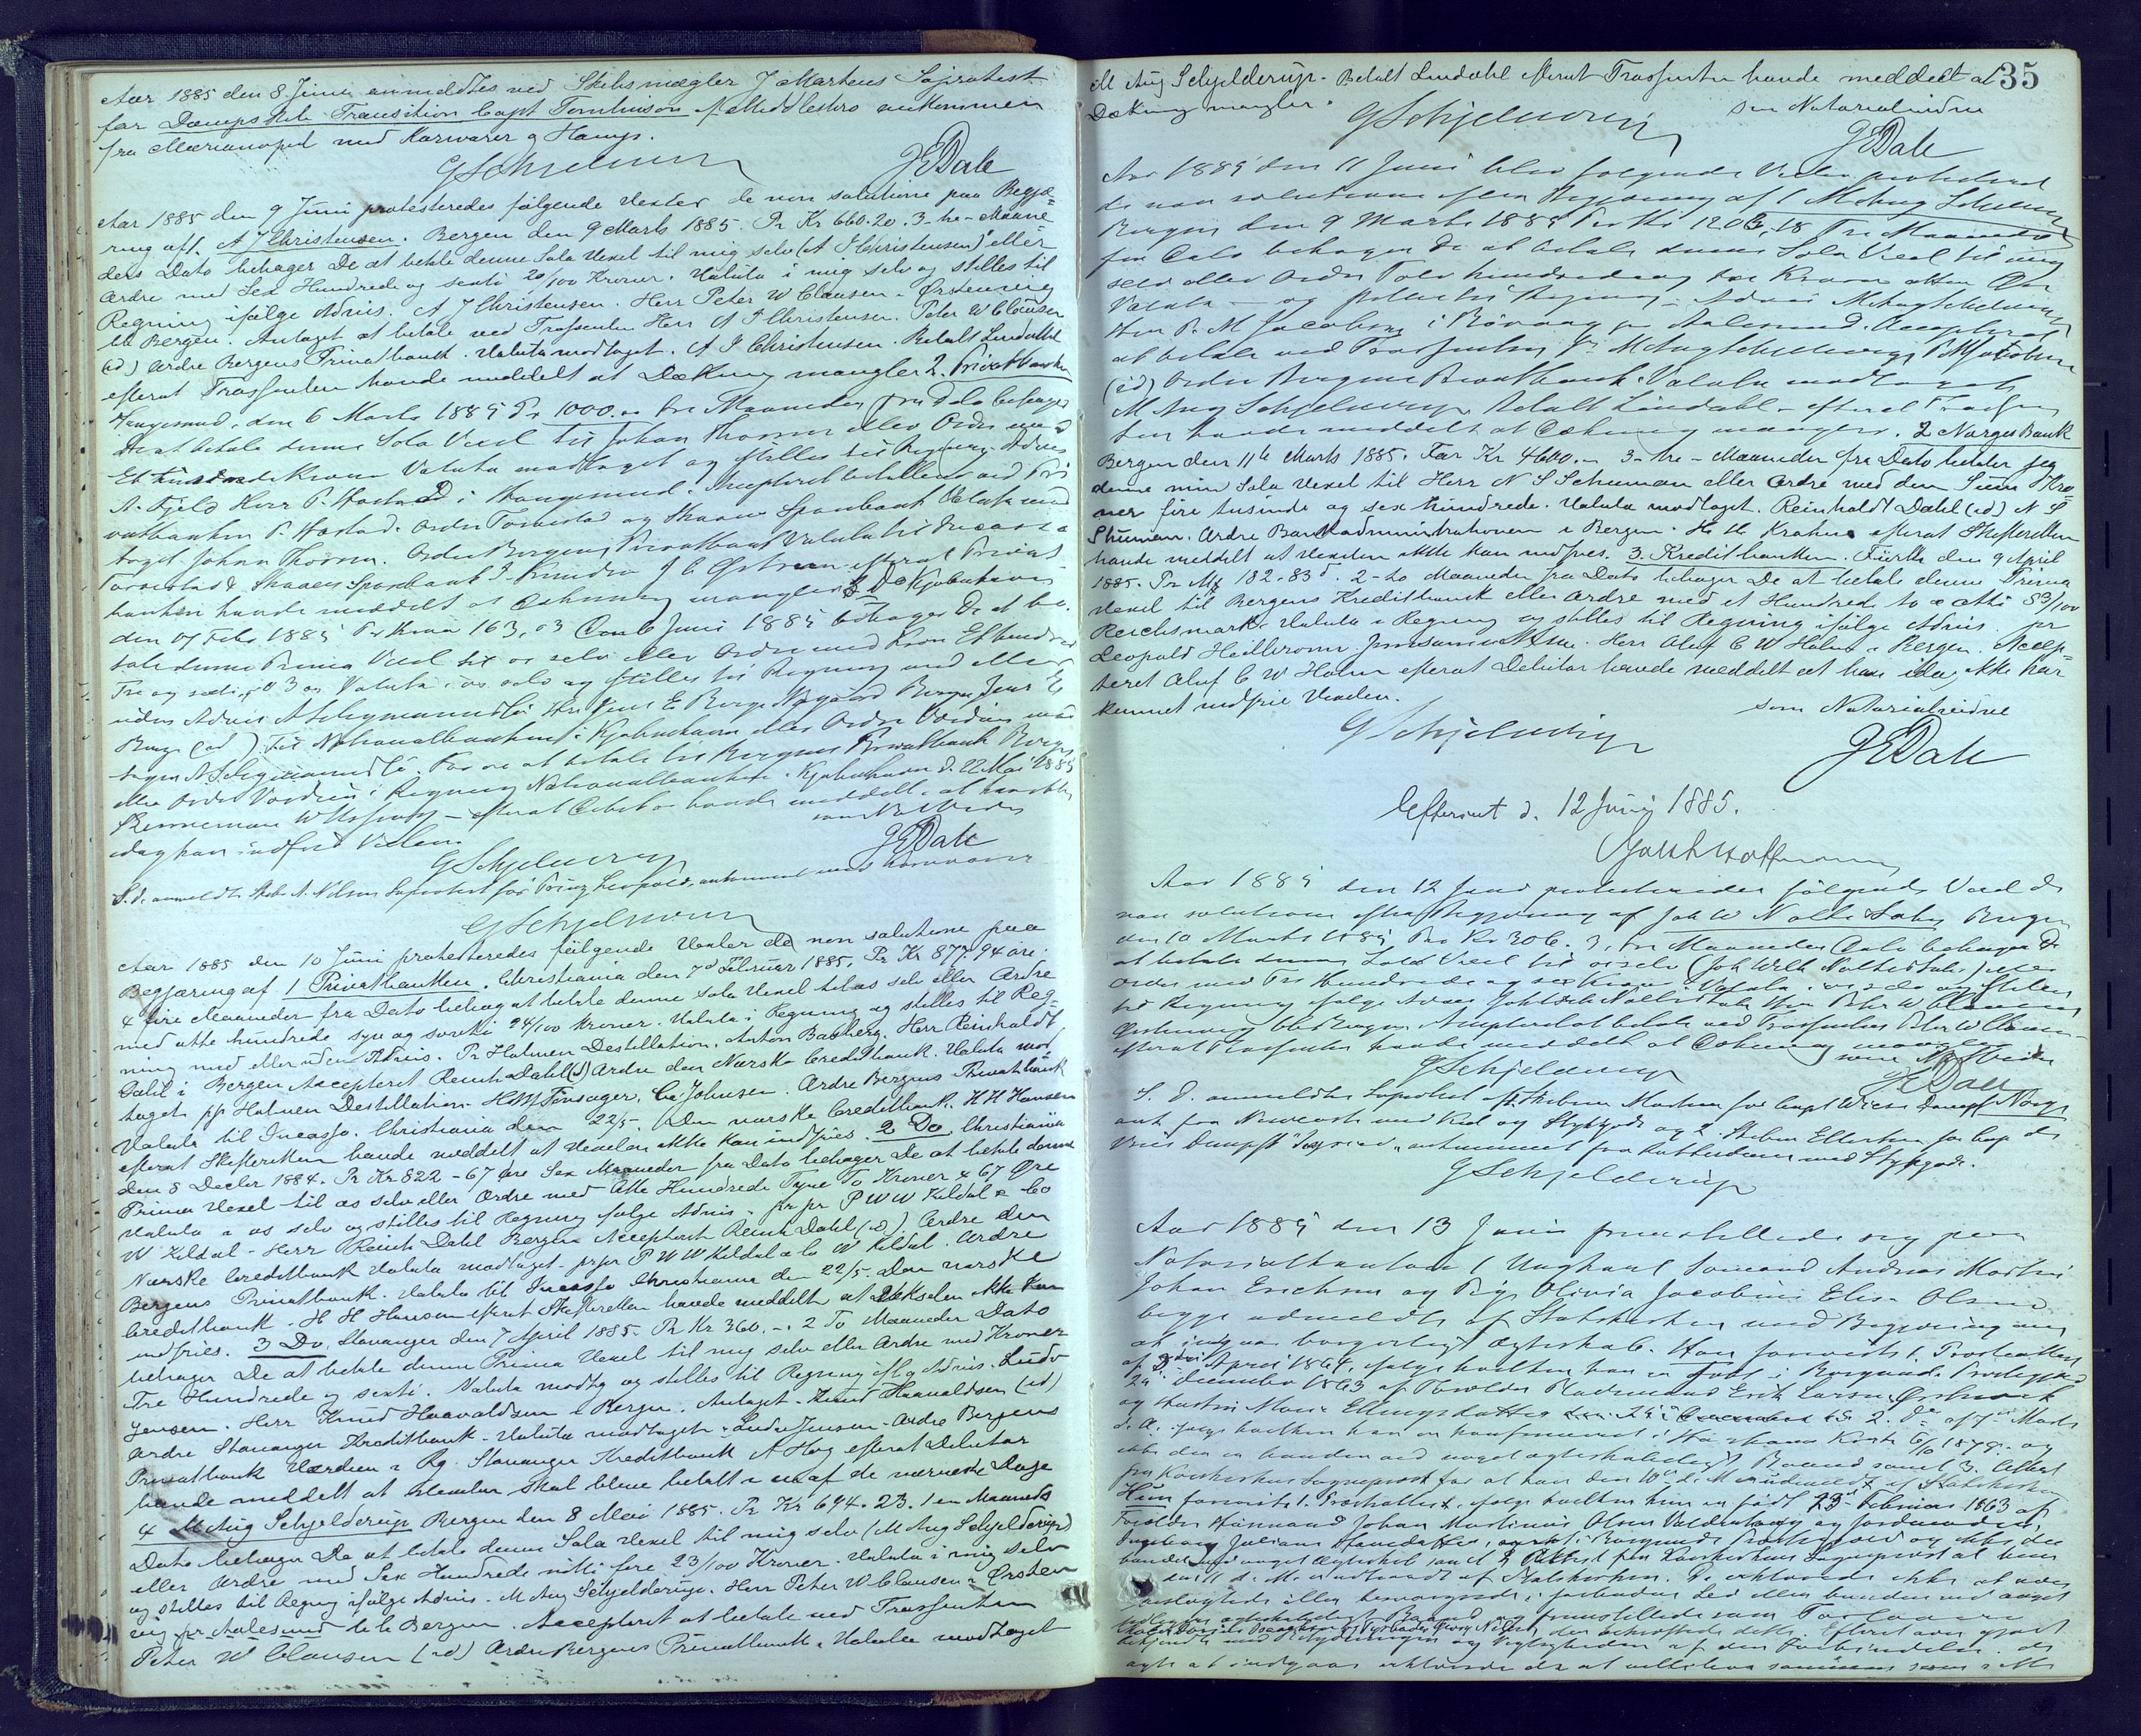 Aar 1885 den 8 Juni anmeldtes ved Skibsmægler J Martens Søprotest
for Dampskib Transition Capt Tomlinson f Middlesbro ankommen
fra Marianopel med Kornvarer og Hamp.
GSchjelderup JEDale
Aar 1885 den 9 Juni protesteredes følgende Vexler de non solutione paa Begjæ=
ring af 1. A J Christensen. Bergen den 9 Marts 1885. Pr Kr 660.20. 3-tre-Maane
ders Dato behager De at betale denne Sola Vexel til mig selv (A J Christensen) eller
Ordre med Sex Hundrede og sexti 20/100 Kroner. Valuta i mig selv og stilles til
Regning ifølge Advis. A J Christensen. Herr Peter W Clausen. Ørstenvig
til Bergen. Antaget at betale ved Trassenten Herr A J Christensen. Peter W Clausen
(id) Ordre Bergens Privatbank. Valuta modtaget. A J Christensen. Betalt Lindahl
efterat Trassenten havde meddelt at Dækning mangler 2. Privatbanken
Haugesund, den 6 Marts 1885 Pr 1000.00 tre Maaneder fra Dato behager
De at betale denne Sola Vexel til Johan Thorsen eller Ordre med
Et tusinde Kroner Valuta modtaget og stilles til Regning Advis
A. Fjeld Herr P. Hastad i Haugesund. Accepteret betalbar ved Pri
vatbanken P. Hastad. Ordre Torvestad og Skaare Sparebank Valuta mod
taget Johan Thorsen. Ordre Bergens Privatbank Valuta til Incasso
Torvestad & Skaare Sparebank efterat Privat
banken havde meddelt at Dækning mangler 3 Do Kjøbenhavn
den 07 Feb 1885 Pr Kron 163,03 Den 6 Juni 1885 behager De at be
tale denne Prima Vexel til os selv eller Ordre med Kron Ethundrede
Tre og sexti, 03 ør Valuta i os selv og stilles til Regning med eller
uden Advis Herr Jens E Borge Bergen Jens E
Borge (id) Til Nationalbanken i Kjøbenhavn eller Ordre Værdien mod
tagen For os at betale til Bergens Privatbank Bergen
eller Ordre Værdien i Regning Nationalbanken. Kjøbenhavn d. 22 Mai 1885
efterat Debitor havde meddelt at han ikke
idag kan indfri Vexlen. som Not Vidne
GSchjelderup JEDale
S. d. anmeldte A. Nilsen Søprotest for Prinz Leopold, ankommet med kornvarer
GSchjelderup
Aar 1885 den 10 Juni protesteredes følgende Vexler de non solutione paa
Begjæring af 1 Privatbanken. Christiania den 7d Februar 1885. Pr Kr 877.94 øre.
4 fire Maaneder fra Dato behag at betale denne sola Vexel til os selv eller Ordre
med otte hundrede syv og sytti 94/100 Kroner. Valuta i Regning og stilles til Reg=
ning med eller uden Advis. Pr Holmen Destillation. Anton Backerg. Herr Reinholdt
Dahl i Bergen Accepteret Reinh Dahl (id) Ordre den Norske Creditbank. Valuta mod
taget pp Holmen Destillation. Ordre Bergens Privatbank
Valuta til Incasso. Christiania den 22/5. Den norske Creditbank. H H Hansen
efterat Skifteretten havde meddelt at Vexelen ikke kan indfries. 2 Do Christiania
den 8 Decbr 1884. Pr Kr. 822-67 øre Sex Maaneder fra Dato behager De at betale denne
Prima Vexel til os selv eller Ordre med Otte Hundrede Tyve To Kroner & 67 Øre
Valuta i os selv og stilles til Regning ifølge Advis. pr pr P W W Kildal & Co
W Kildal. Herr Reinh Dahl Bergen Accepteret Reinh Dahl (id). Ordre den
Norske Creditbank Valuta modtaget. pr pr P W W Kildal & Co W Kildal. Ordre
Bergens Privatbank. Valuta til Incasso Christiania den 22/5. Den norske
Creditbank. H H Hansen efterat Skifteretten havde meddelt at Vekselen ikke kan
indfries. 3 Do. Stavanger den 7 April 1885. Pr Kr 360.-. 2 To Maaneder Dato
behager De at betale denne Prima Vexel til mig selv eller Ordre med Kroner
Tre Hundrede og sexti. Valuta modtg og stilles til Regning iflg Advis. Ludv
Jensen. Herr Knud Haavaldsen i Bergen. Antaget. Knud Haavaldsen (id)
Ordre Stavanger Kreditbank. Valuta modtaget. Ludv Jensen. Ordre Bergens
Privatbank Værdien i Rg. Stavanger Kreditbank A Hog efterat Debitor
havde meddelt at Vexelen skal blive betalt i en af de nærmeste Dage
4 M Aug Schjelderup Bergen den 8 Mai 1885. Pr Kr 694.23. 1 en Maaneds
Dato behager De at betale denne Sola Vexel til mig selv (M Aug Schjelderup)
eller Ordre med Sex Hundrede nitti fire 23/100 Kroner. Valuta i mig selv
og stilles til Regning ifølge Advis. M Aug Schjelderup. Herr Peter W Clausen i Ørsten
vig pr Aalesund til Bergen. Accepteret at betale ved Trassenten
Peter W Clausen (id) Ordre Bergens Privatbank. Valuta modtaget
35
M Aug Schjelderup. Betalt Lindahl efterat Trassenten havde meddelt at
Dækning mangler. som Notarialvidne
GSchjelderup JEDale
Aar 1885 den 11 Juni blev følgende Vexler protesteret
de non solutione efter Begjæring af 1 M Aug Schjelderup
Bergen den 9 Marts 1885 Pr Kr 1206,18 Tre Maaneder
fra Dato behager De at betale denne Sola Vexel til mig
selv eller Ordre Tolv hundrede og sex Kroner atten Øre
Valuta og stilles til Regning Advis M Aug Schjelderup
Herr P. M Jacobsen i Aalesund. Accepteret
at betale ved Trassenten Hr M Aug Schjelderup P M Jacobsen
(id) Ordre Bergens Privatbank. Valuta modtaget
M Aug Schjelderup Betalt Lindahl efterat Trassen
ten havde meddelt at Dækning mangler. 2 Norges Bank
Bergen den 11te Marts 1885. For Kr 4600.- 3-tre-Maaneder fra Dato betaler jeg
denne min Sola Vexel til Herr N S Schuman eller Ordre med den Sum Kro=
ner fire tusinde og sex hundrede. Valuta modtaget. Reinholdt Dahl (id) N S
Schuman. Ordre Bankadministrationen i Bergen. efterat Skifteretten
havde meddelt at Vexelen ikke kan indfries. 3. Kreditbanken. Fürth den 9 April
1885. Pr Mk 182.83d. 2-to Maaneder fra Dato behager De at betale denne Prima
Vexel til Bergens Kreditbank eller Ordre med et Hundrede to & otti 83/100
Reichsmark. Valuta i Regning og stilles til Regning ifølge Advis pr
Leopold Heilbronn. Herr Oluf C W Holm i Bergen. Accep=
teret Oluf C W Holm efterat Debitor havde meddelt at han idag ikke har
kunnet indfrie Vexelen.
som Notarialvidne
GSchjelderup JEDale
Efterseet d. 12 Juni 1885.
Aar 1885 den 12 Juni protesteredes følgende Vexel de
non solutione efter Begjæring af Joh W Nolte Sohn Bergen
den 10 Marts 1885 Pro Kr 306. 3, tre Maaneder Dato behager De
at betale denne Sola Vexel til os selv (Joh Wilh Noltes Sohn) eller
Ordre med Tre Hundrede og sex Kroner. Valuta i os selv og stilles
til Regning ifølge Advis Joh Wilh Noltes Sohn Herr Peter W Clausen
Ørstenvig til Bergen Accepteret at betale ved Trassenten Peter W Clausen
efterat Trassenten havde meddelt at Dækning mangler
GSchjelderup som Not Vidne
JEDale
S. D. anmeldte Søprotest Skibsm Martens for Capt Wiese Dampsk Norge
ank fra Newcastle med Kul og Stykgods og 2. Skibsm Ellerhusen for Cap de
Vries Dampsk ankommet fra Rotterdam med Stykgods.
GSchjelderup
Aar 1885 den 13 Juni fremstillede sig paa
Notarialkontoret Ungkarl Sømand Andreas Martin
Johan Erichsen og Pige Olivia Jacobine Elise Olsen
begge udmeldte af Statskirken med Begjæring om
at indgaa borgerligt Ægteskab. Han foreviste 1. Præsteattest
af April 1864, ifølge hvilken han er født i Borgunds Præstegjeld
24 December 1863 af Forældre Erik Larsen
og Hustru Marie Ellingsdatter 2. Do af Marts
d. A. ifølge hvilken han er konfirmeret i Kirke 5/10 1879. og
ikke den er bunden ved noget ægteskabeligt Baand samt 3. Attest
fra Korskirkens Sognepræst for at han den 10de d. M. udmeldt af Statskirken
Hun foreviste 1. Præsteattest, ifølge hvilken hun er født 23de Februar 1863 af
Forældre Johan Martinus Olsen og Jordmoder
Ingeborg Juliane Hansdatter, i Borgunds Præstegjeld og ikke er
bunden ved noget Ægteskab samt 2 Attest fra Korskirkens Sognepræst at hun
den 11 d. M. udtraadt af Statskirken. De erklærede ikke at være
beslægtede eller besvogrede i forbudne Led eller bundne ved noget
ægteskabeligt Baand og fremstillede som Forlovere
der bekræftede dette. Efterat være gjort
bekjendt med Betydningen og Vigtigheden af den Forbindelse de
agte at indgaa erklærede de at ville leve sammen som ret